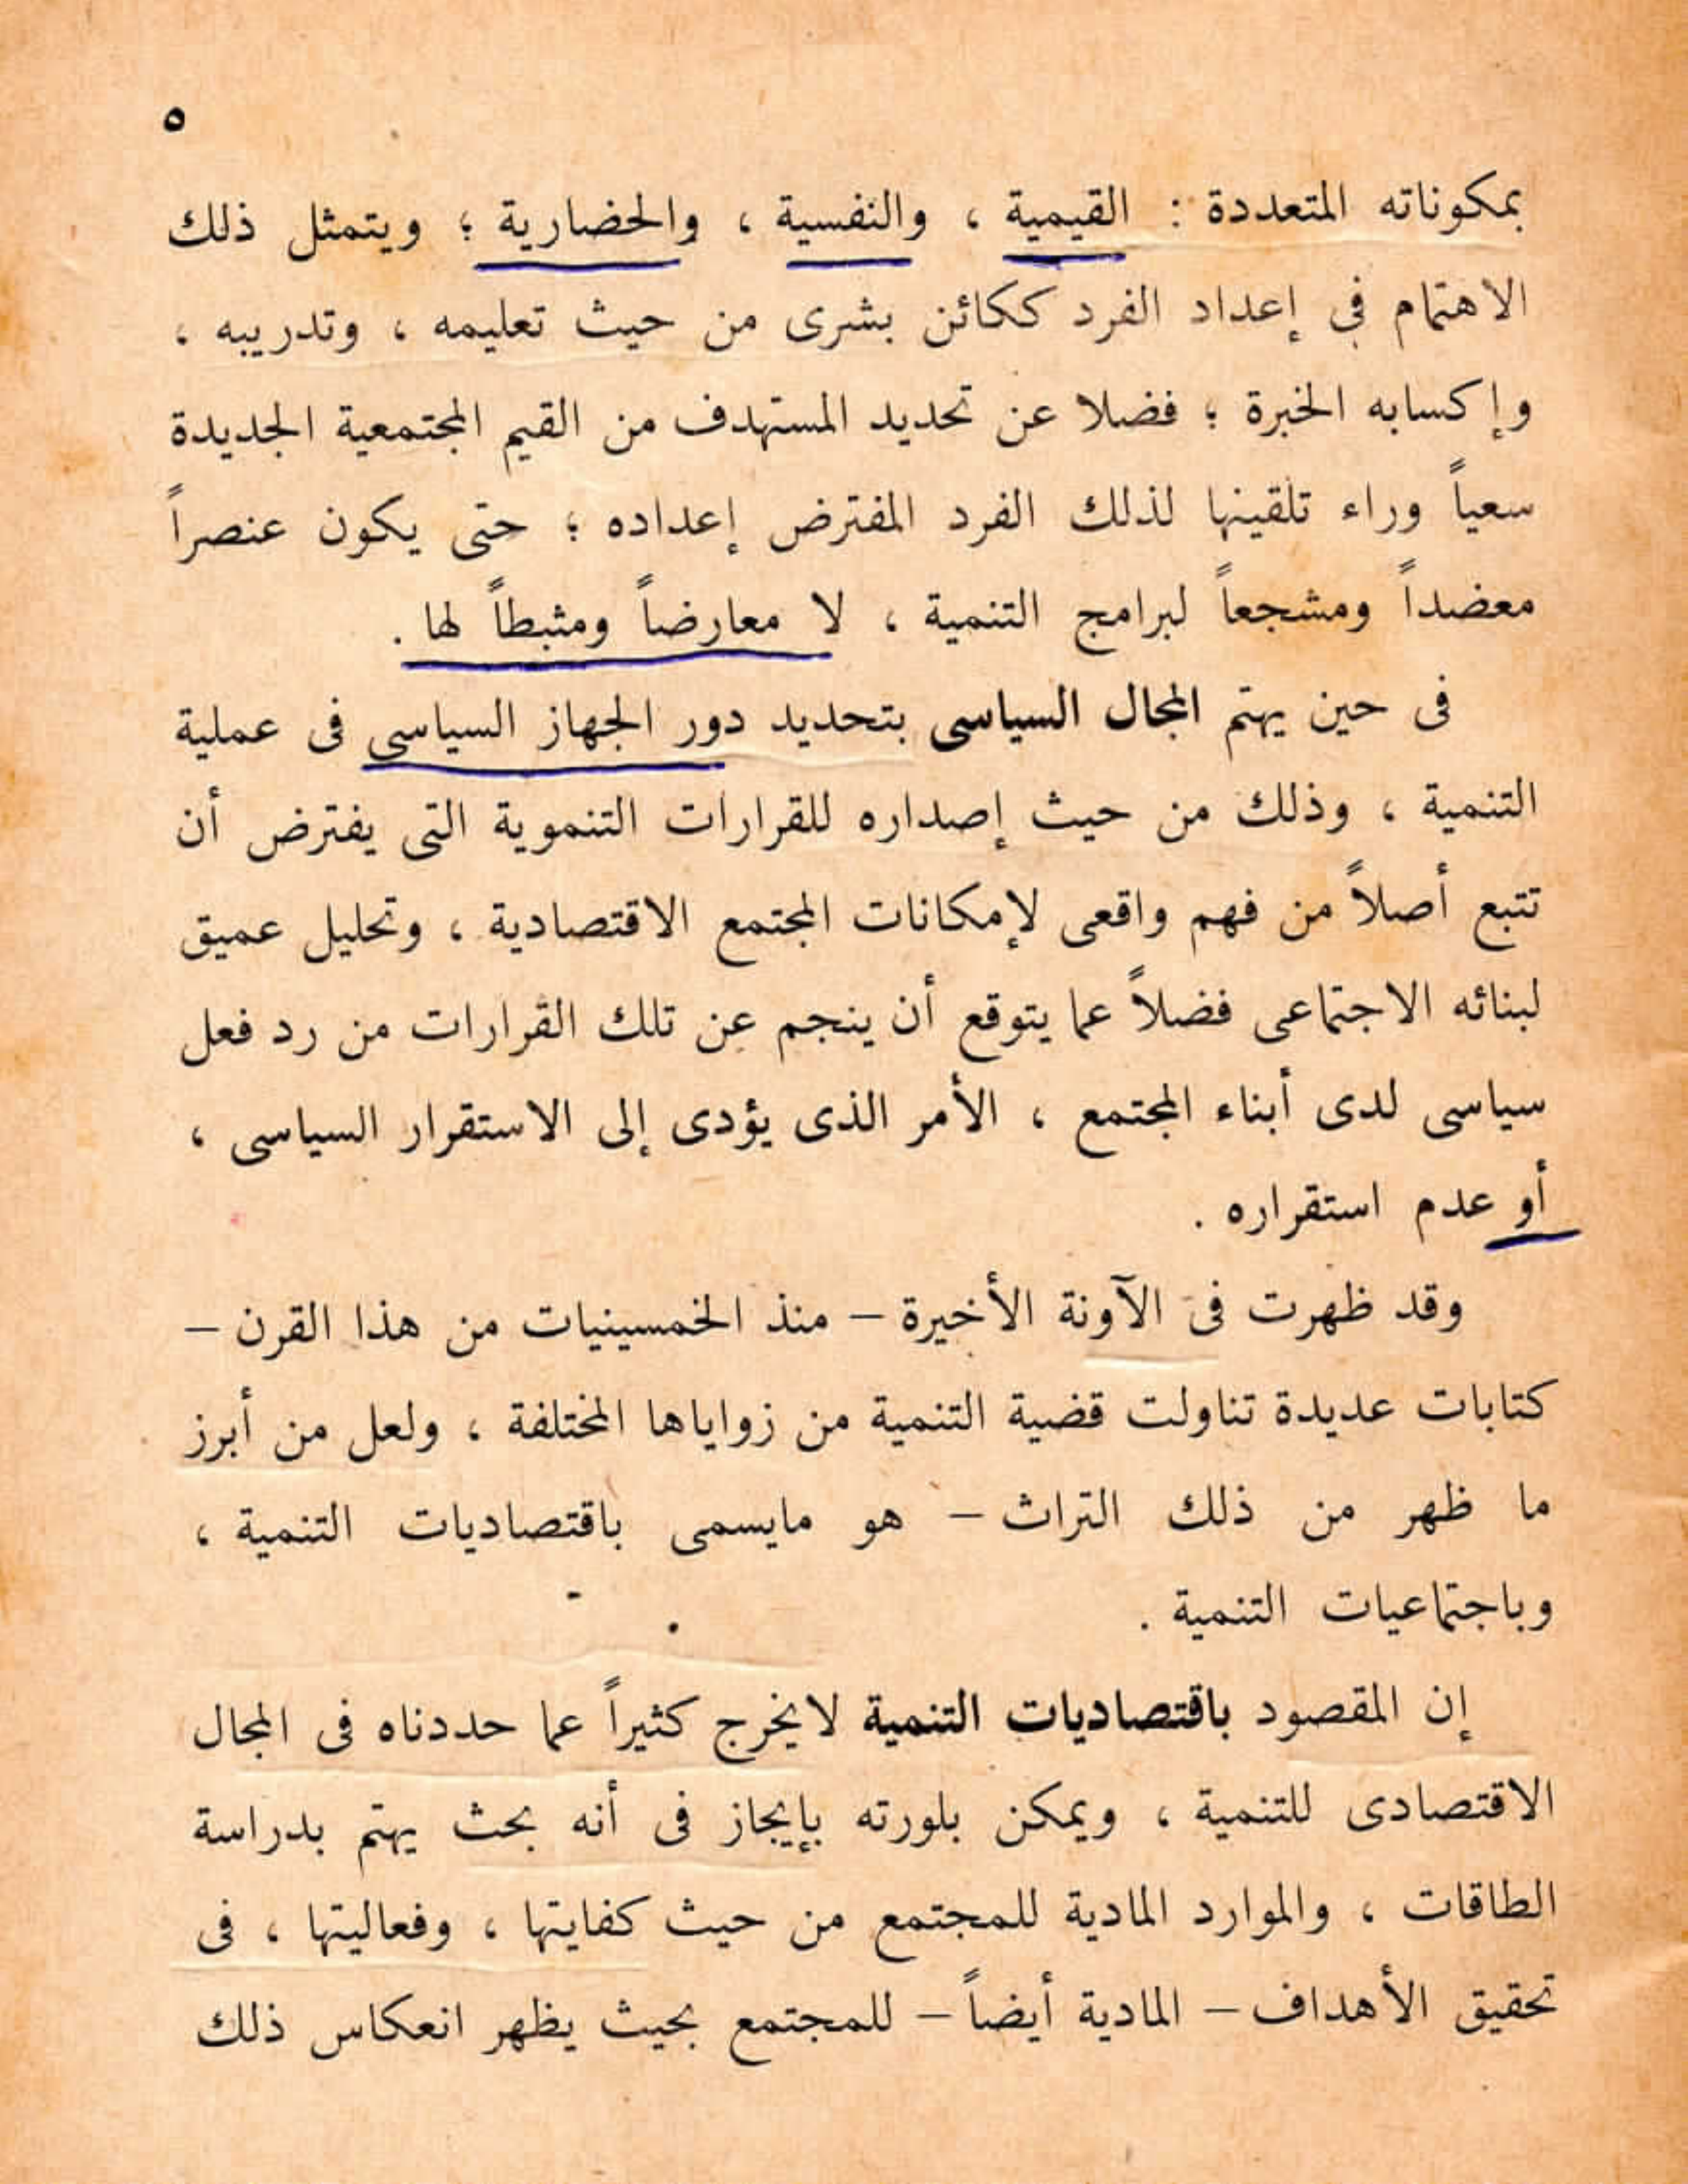 ٥
بمكوناته المتعددة : القيمية ، والنفسية ، والحضارية ؛ ويتمثل ذلك
الاهتمام في إعداد الفرد ككائن بشرى من حيث تعليمه ، وتدريبه ،
وإكسابه الخبرة ؛ فضلا عن تحديد المستهدف من القيم المجتمعية الجديدة
سعياً وراء تلقينها لذلك الفرد المفترض إعداده ؛ حتى يكون عنصراً
معضداً ومشجعاً لبرامج التنمية ، لا معارضاً ومثبطاً لها .
فى حين يهتم المجال السياسى بتحديد دور الجهاز السياسي فى عملية
التنمية ، وذلك من حيث إصداره للقرارات التنموية التى يفترض أن
تتبع أصلاً من فهم واقعى لإمكانات المجتمع الاقتصادية ، وتحليل عميق
لبنائه الاجتماعى فضلاً عما يتوقع أن ينجم عن تلك القرارات من رد فعل
سياسى لدى أبناء المجتمع ، الأمر الذى يؤدى إلى الاستقرار السياسى ،
أو عدم استقراره .
وقد ظهرت فى الآونة الأخيرة – منذ الخمسينيات من هذا القرن –
كتابات عديدة تناولت قضية التنمية من زواياها المختلفة ، ولعل من أبرز
ما ظهر من ذلك التراث – هو مايسمى باقتصاديات التنمية ،
وباجتماعيات التنمية .
إن المقصود باقتصاديات التنمية لايخرج كثيراً عما حددناه فى المجال
الاقتصادى للتنمية ، ويمكن بلورته بإيجاز فى أنه بحث يهتم بدراسة
الطاقات ، والموارد المادية للمجتمع من حيث كفايتها ، وفعاليتها ، فى
تحقيق الأهداف – المادية أيضاً – للمجتمع بحيث يظهر انعكاس ذلك